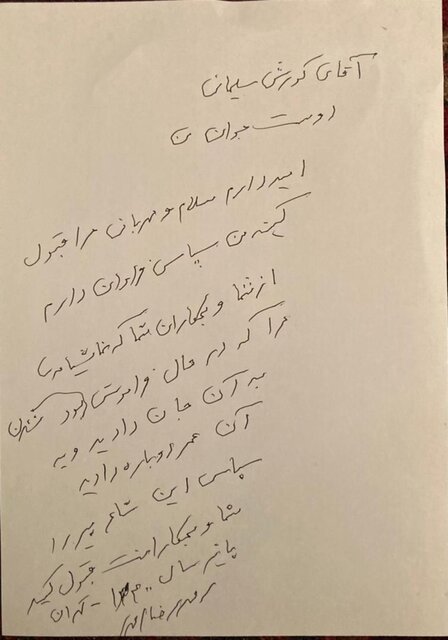 آقای کورش سلیمانی
دوست جوان من
امید دارم سلام و مهربانی مرا قبول
کنید من سپاس فراوان دارم
از شما و همکاران شما که نمایشنامه
مرا که در حال فراموش شدن بود
به آن جان دادید و به
آن عمر دوباره دادید
سپاس این شاعر پیر را
شما و همکارانت قبول کنید
پاییز سال ۱۴۰۰ - تهران